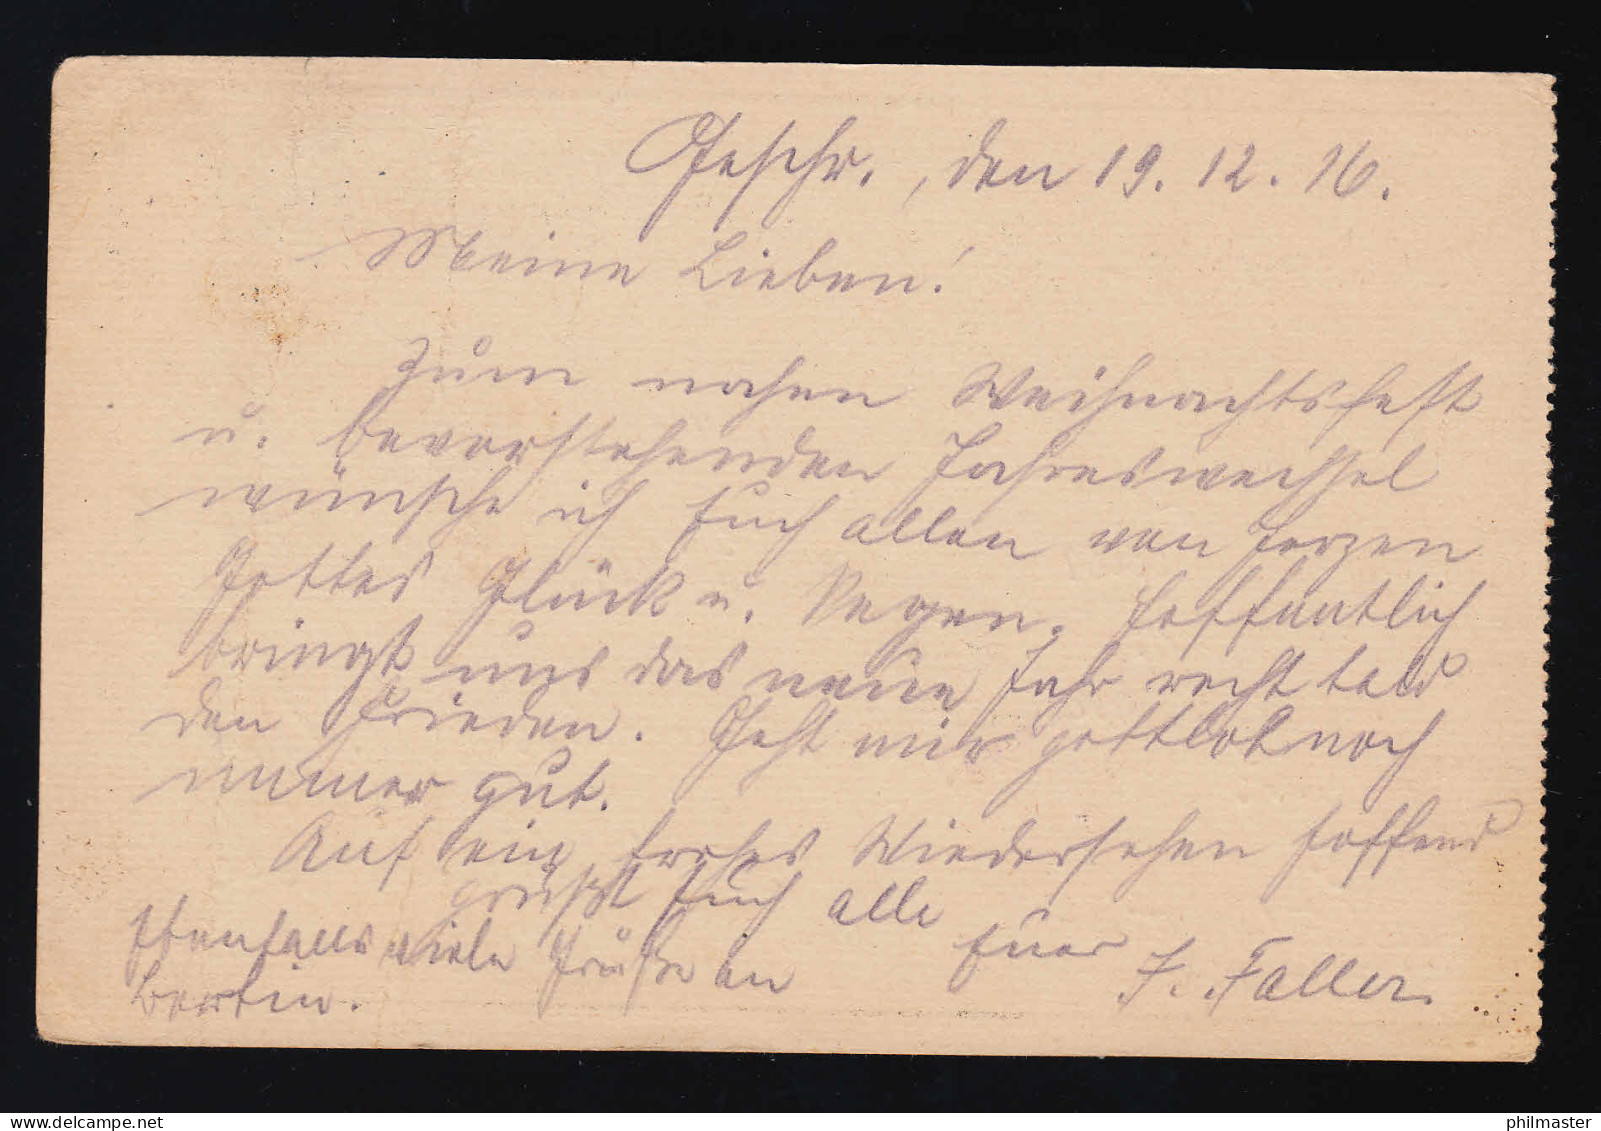 Geschr., den 19. 12. 16.
Meine Lieben!
Zum nahen Weihnachtsfest
u. bevorstehenden Jahreswechsel
wünsche ich Euch allen von Herzen
Gottes Glück u. Segen. Hoffentlich
bringt uns das neue Jahr recht bald
den Frieden. Geht mir gottlob noch
immer gut.
Auf ein frohes Wiedersehen hoffend
grüßt Euch alle
Euer F. Faller.
Ebenfalls viele Grüße an